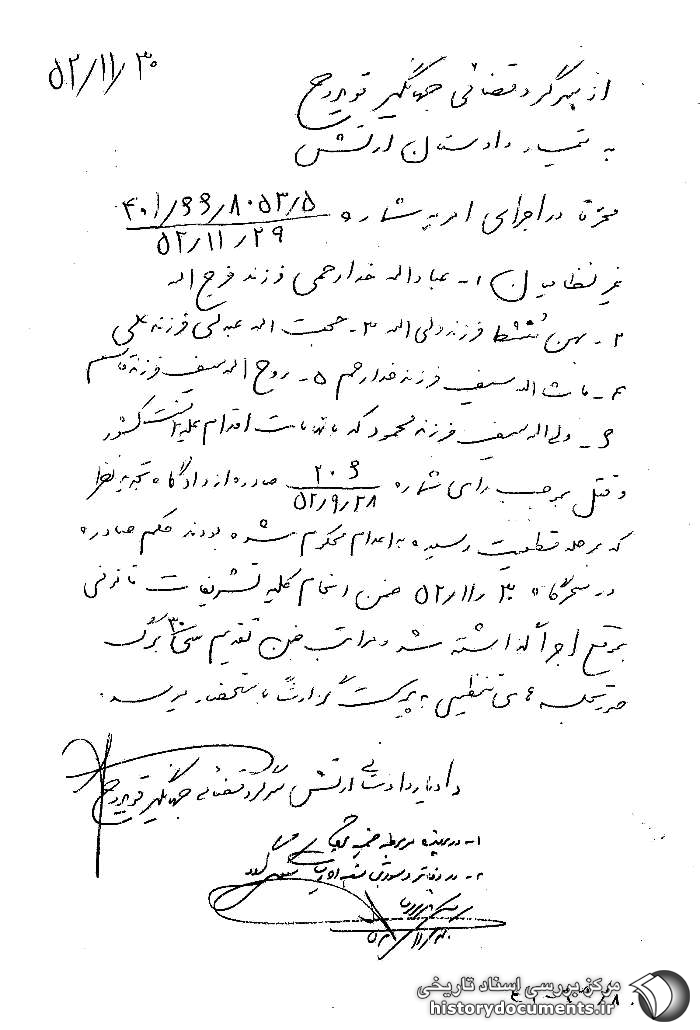 ۵۲/۱۱/۳۰
از سرگرد قضائی جهانگیر قویروح
به تیمسار دادستان ارتش
محترماً در اجرای امریه شماره ۴۰۱/۶۶/۸۰۵۳/۵
۵۲/۱۱/۲۹
غیر نظامیان ۱- عباداله خدارحمی فرزند فرج اله
۲- بهمن مُنشط فرزند ولی اله ۳- حجت اله عبدلی فرزند علی
۴- ماشااله سیف فرزند خدارحم ۵- روح اله سیف فرزند قاسم
۶- ولی اله سیف فرزند محمود که باتهامات اقدام علیه امنیت کشور
و قتل بموجب رای شماره ۲۰۶ صادره از دادگاه تجدید نظر
۵۲/۹/۲۸
که بمرحله قطعیت رسیده به اعدام محکوم شده بودند حکم صادره
در سحرگاه ۵۲/۱۱/۳۰ ضمن انجام کلیه تشریفات قانونی
بموقع اجرا گذاشته شد و مراتب ضمن تقدیم سی ۳۰ برگ
صورتجلسه های تنظیمی به پیوست گزارشاً باستحضار میرسد.
دادیار دادستانی ارتش سرگرد قضائی جهانگیر قویروح
۱- در پرونده مربوطه ضمیمه
۲- در دفاتر
۱۱/۳۰
مرکز بررسی اسناد تاریخی
historydocuments.ir